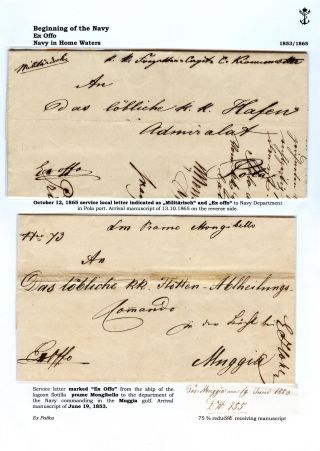 Beginning of the Navy
Ex Offo
Navy in Home Waters
1853/1865
Militärisch
An
Das löbliche k. k. Hafen
Admiralat
Ex offo
October 12, 1865 service local letter indicated as „Militärisch" and „Ex offo" to Navy Department
in Pola port. Arrival manuscript of 13.10.1865 on the reverse side.
Nro 73
Vom Prame Mongibello
An
Das löbliche kk Flotten-Abtheilungs-
Comando
in der
Ex Offo
Muggia
Service letter marked "Ex Offo" from the ship of the
lagoon flotilla prame Mongibello to the department of
the Navy commanding in the Muggia gulf. Arrival
manuscript of June 19, 1853.
Muggia am 19 Juni 1853
155
Ex Patka
75 % reduced receiving manuscript